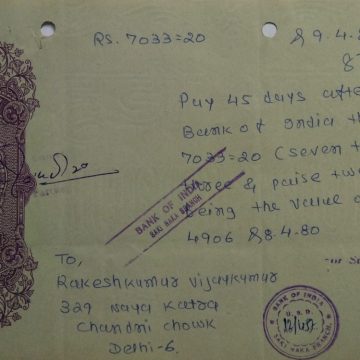 RS. 7033=20
9.4.80
Pay 45 days afte
Bank of India th
7033=20 (seven t
three & paise twe
being the value o
4906 8.4.80
BANK OF INDIA
SAKI NAKA BRANCH
To,
Rakeshkumar Vijaykumar
329 Naya Katra
Chandni Chowk
Delhi-6.
BANK OF INDIA
SAKI NAKA BRANCH